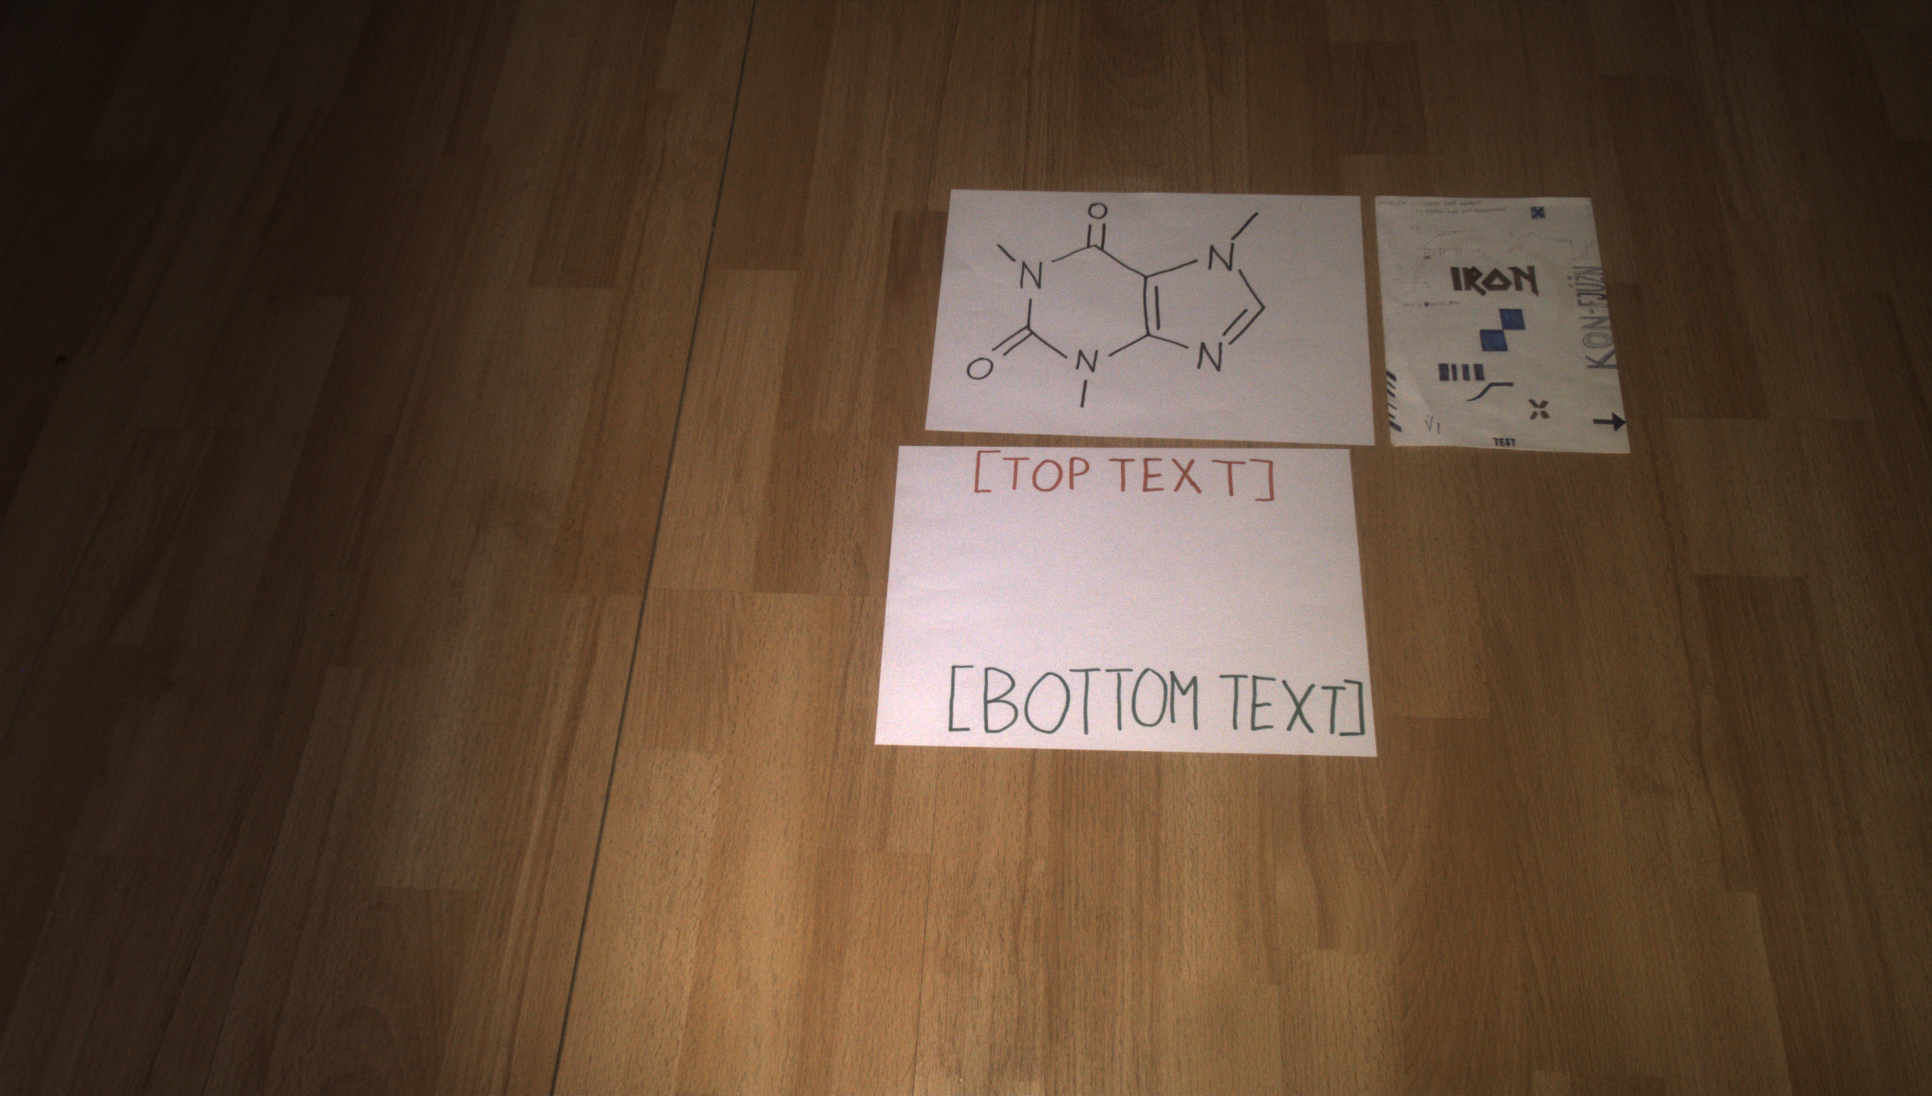 O
N
N
O
N
N
IRON
KON-FJUŽN
TEST
[TOP TEXT]
[BOTTOM TEXT]